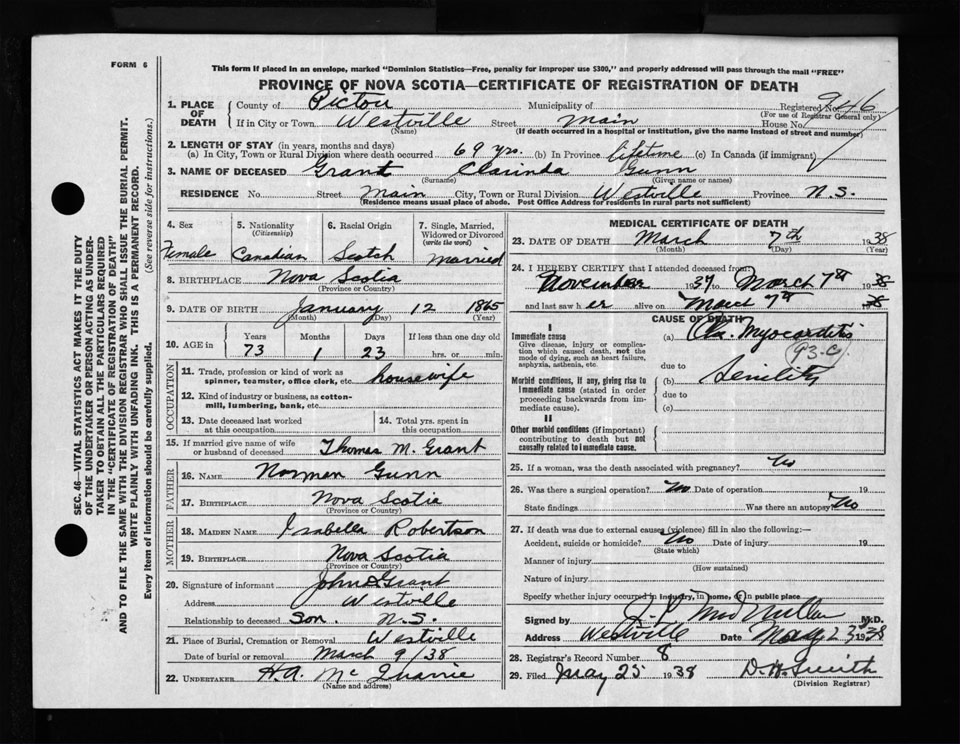 FORM 6
This form if placed in an envelope, marked "Dominion Statistics—Free, penalty for improper use $300," and properly addressed will pass through the mail "FREE"
PROVINCE OF NOVA SCOTIA—CERTIFICATE OF REGISTRATION OF DEATH
1. PLACE OF DEATH County of Pictou Municipality of Registered No. 946
(For use of Registrar General only)
If in City or Town Westville Street Main House No.
(Name) (If death occurred in a hospital or institution, give the name instead of street and number)
2. LENGTH OF STAY (in years, months and days)
(a) In City, Town or Rural Division where death occurred 69 yrs. (b) In Province lifetime (c) In Canada (if immigrant)
3. NAME OF DECEASED Grant Clarinda Gunn
(Surname) (Given name or names)
RESIDENCE No. Street Main City, Town or Rural Division Westville Province N.S.
(Residence means usual place of abode. Post Office Address for residents in rural parts not sufficient)
4. Sex 5. Nationality (Citizenship) 6. Racial Origin 7. Single, Married, Widowed or Divorced (write the word)
Female Canadian Scotch Married
8. BIRTHPLACE Nova Scotia
(Province or Country)
9. DATE OF BIRTH January 12 1865
(Month) (Day) (Year)
10. AGE in Years Months Days If less than one day old
73 1 23 hrs. or min.
OCCUPATION
11. Trade, profession or kind of work as spinner, teamster, office clerk, etc. housewife
12. Kind of industry or business, as cotton-mill, lumbering, bank, etc.
13. Date deceased last worked at this occupation 14. Total yrs. spent in this occupation
15. If married give name of wife or husband of deceased Thomas M. Grant
FATHER
16. NAME Norman Gunn
17. BIRTHPLACE Nova Scotia
(Province or Country)
MOTHER
18. MAIDEN NAME Isabella Robertson
19. BIRTHPLACE Nova Scotia
(Province or Country)
20. Signature of informant John Grant
Address Westville
Relationship to deceased Son. N.S.
21. Place of Burial, Cremation or Removal Westville
Date of burial or removal March 9/38
22. UNDERTAKER H.A. McQuarrie
(Name and address)
MEDICAL CERTIFICATE OF DEATH
23. DATE OF DEATH March 7th 1938
(Month) (Day) (Year)
24. I HEREBY CERTIFY that I attended deceased from
November 1937 to March 7th 1938
and last saw her alive on March 7th 38
CAUSE OF DEATH
I
Immediate cause (a) Chr. Myocarditis
Give disease, injury or complication which caused death, not the mode of dying, such as heart failure, asphyxia, asthenia, etc.
93.c.
due to
Morbid conditions, if any, giving rise to immediate cause (stated in order proceeding backwards from immediate cause).
(b) Senility
due to
(c)
II
Other morbid conditions (if important) contributing to death but not causally related to immediate cause.
25. If a woman, was the death associated with pregnancy? No
26. Was there a surgical operation? No Date of operation 19
State findings Was there an autopsy? No
27. If death was due to external causes (violence) fill in also the following:—
Accident, suicide or homicide? No Date of injury 19
(State which)
Manner of injury
(How sustained)
Nature of injury
Specify whether injury occurred in industry, in home, or in public place
Signed by MacMillan M.D.
Address Westville Date May 23 1938
28. Registrar's Record Number 8
29. Filed May 25 1938 D.W. Smith
(Division Registrar)
SEC. 46—VITAL STATISTICS ACT MAKES IT THE DUTY
OF THE UNDERTAKER OR PERSON ACTING AS UNDER-
TAKER TO OBTAIN ALL THE PARTICULARS REQUIRED
IN THE "CERTIFICATE OF REGISTRATION OF DEATH"
AND TO FILE THE SAME WITH THE DIVISION REGISTRAR WHO SHALL ISSUE THE BURIAL PERMIT.
WRITE PLAINLY WITH UNFADING INK. THIS IS A PERMANENT RECORD.
Every item of information should be carefully supplied. (See reverse side for instructions.)